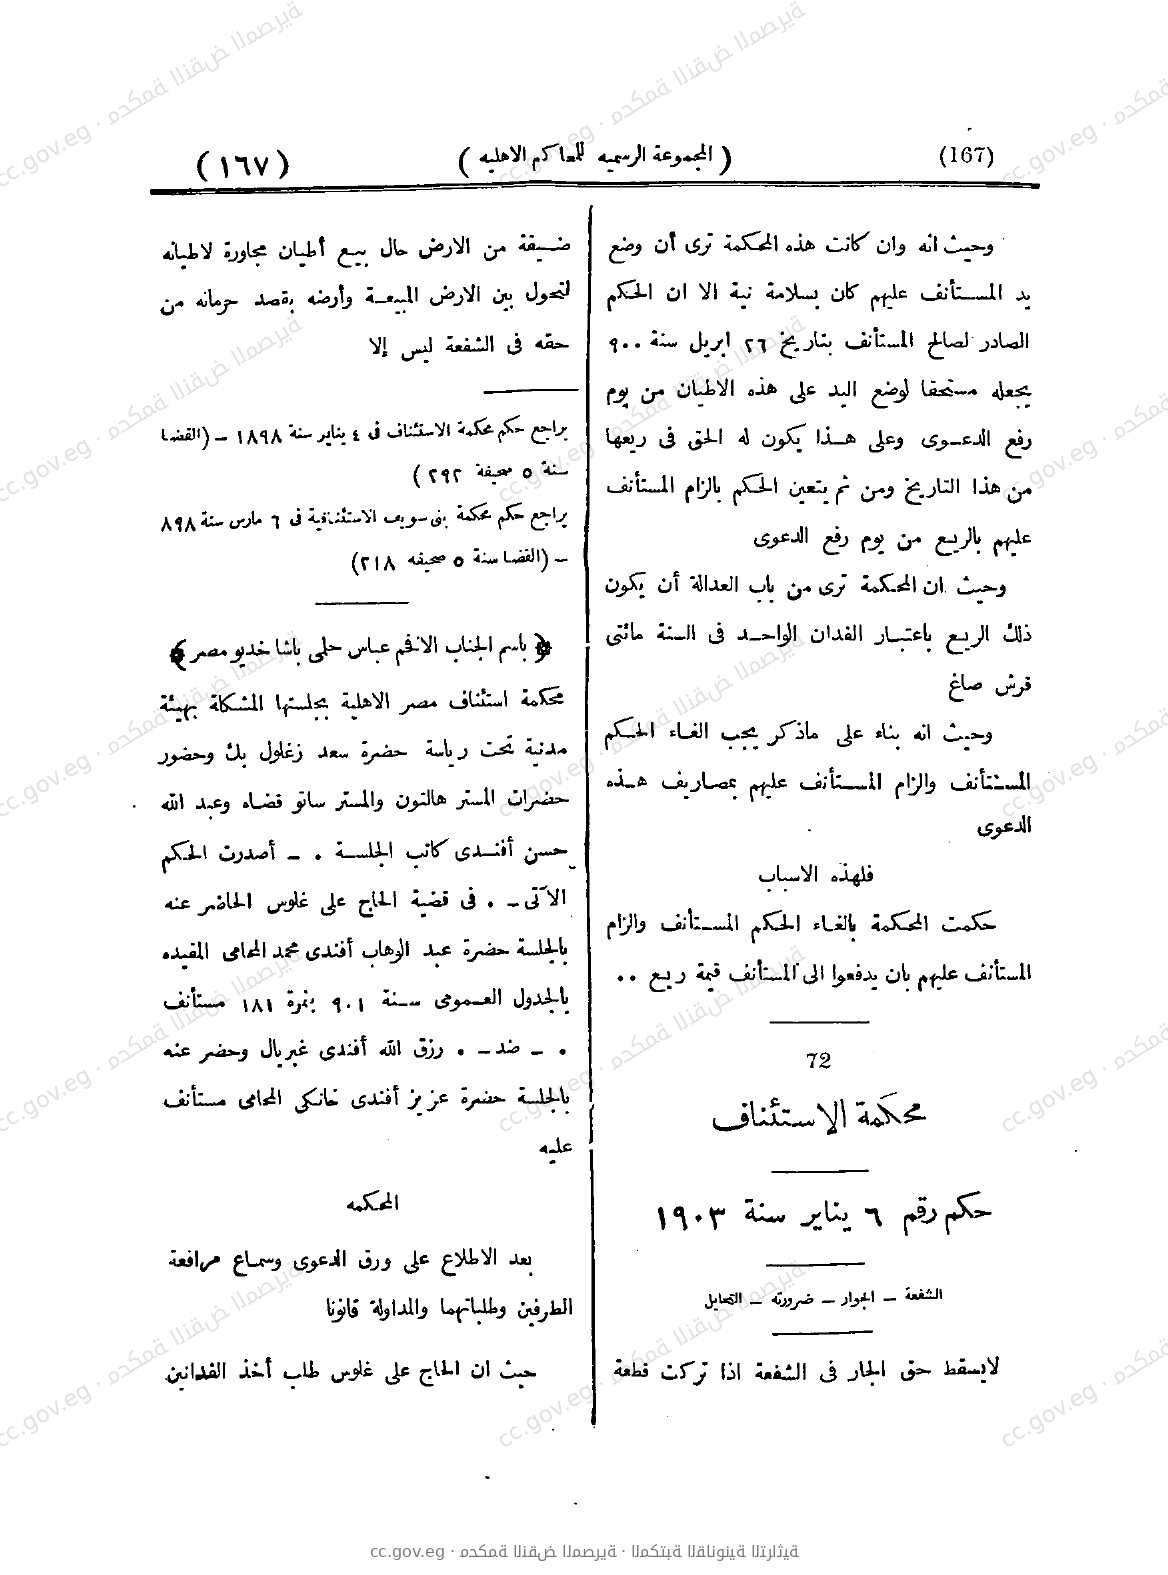 (167)
( المجموعة الرسميه للمحاكم الاهليه )
( ١٦٧ )
وحيث انه وان كانت هذه المحكمة ترى أن وضع
يد المستأنف عليهم كان بسلامة نية الا ان الحكم
الصادر لصالح المستأنف بتاريخ ٢٦ ابريل سنة ٩٠٠
يجعله مستحقا لوضع اليد على هذه الاطيان من يوم
رفع الدعوى وعلى هذا يكون له الحق فى ريعها
من هذا التاريخ ومن ثم يتعين الحكم بالزام المستأنف
عليهم بالريع من يوم رفع الدعوى
وحيث ان المحكمة ترى من باب العدالة أن يكون
ذلك الريع باعتبار الفدان الواحد فى السنة مائتى
قرش صاغ
وحيث انه بناء على ماذكر يجب الغاء الحكم
المستأنف والزام المستأنف عليهم بمصاريف هذه
الدعوى
فلهذه الاسباب
حكمت المحكمة بالغاء الحكم المستأنف والزام
المستأنف عليهم بان يدفعوا الى المستأنف قيمة ريع ..
72
محكمة الاستئناف
حكم رقم ٦ يناير سنة ١٩٠٣
الشفعة – الجوار – ضرورته – التحايل
لايسقط حق الجار فى الشفعة اذا تركت قطعة
ضيقة من الارض حال بيع أطيان مجاورة لاطيانه
لتحول بين الارض المبيعة وأرضه بقصد حرمانه من
حقه فى الشفعة ليس إلا
يراجع حكم محكمة الاستئناف فى ٤ يناير سنة ١٨٩٨ – (القضا
سنة ٥ صحيفة ٢٩٢ )
يراجع حكم محكمة بنى سويف الاستئنافية فى ٦ مارس سنة ٨٩٨
– (القضا سنة ٥ صحيفه ٢١٨)
﴿ باسم الجناب الافخم عباس حلمى باشا خديو مصر ﴾
محكمة استئناف مصر الاهلية بجلستها المشكلة بهيئة
مدنية تحت رياسة حضرة سعد زغلول بك وحضور
حضرات المستر هالتون والمستر ساتو قضاه وعبد الله
حسن أفندى كاتب الجلسة . – أصدرت الحكم
الآتى – . فى قضية الحاج على غلوس الحاضر عنه
بالجلسة حضرة عبد الوهاب أفندى محمد المحامى المقيده
بالجدول العمومى سنة ٩٠١ بنمرة ١٨١ مستأنف
. – ضد – . رزق الله أفندى غبريال وحضر عنه
بالجلسة حضرة عزيز أفندى خانكى المحامى مستأنف
عليه
المحكمه
بعد الاطلاع على ورق الدعوى وسماع مرافعة
الطرفين وطلباتهما والمداولة قانونا
حيث ان الحاج على غلوس طلب أخذ الفدانين
cc.gov.eg · محكمة النقض المصرية · المكتبة القانونية التراثية